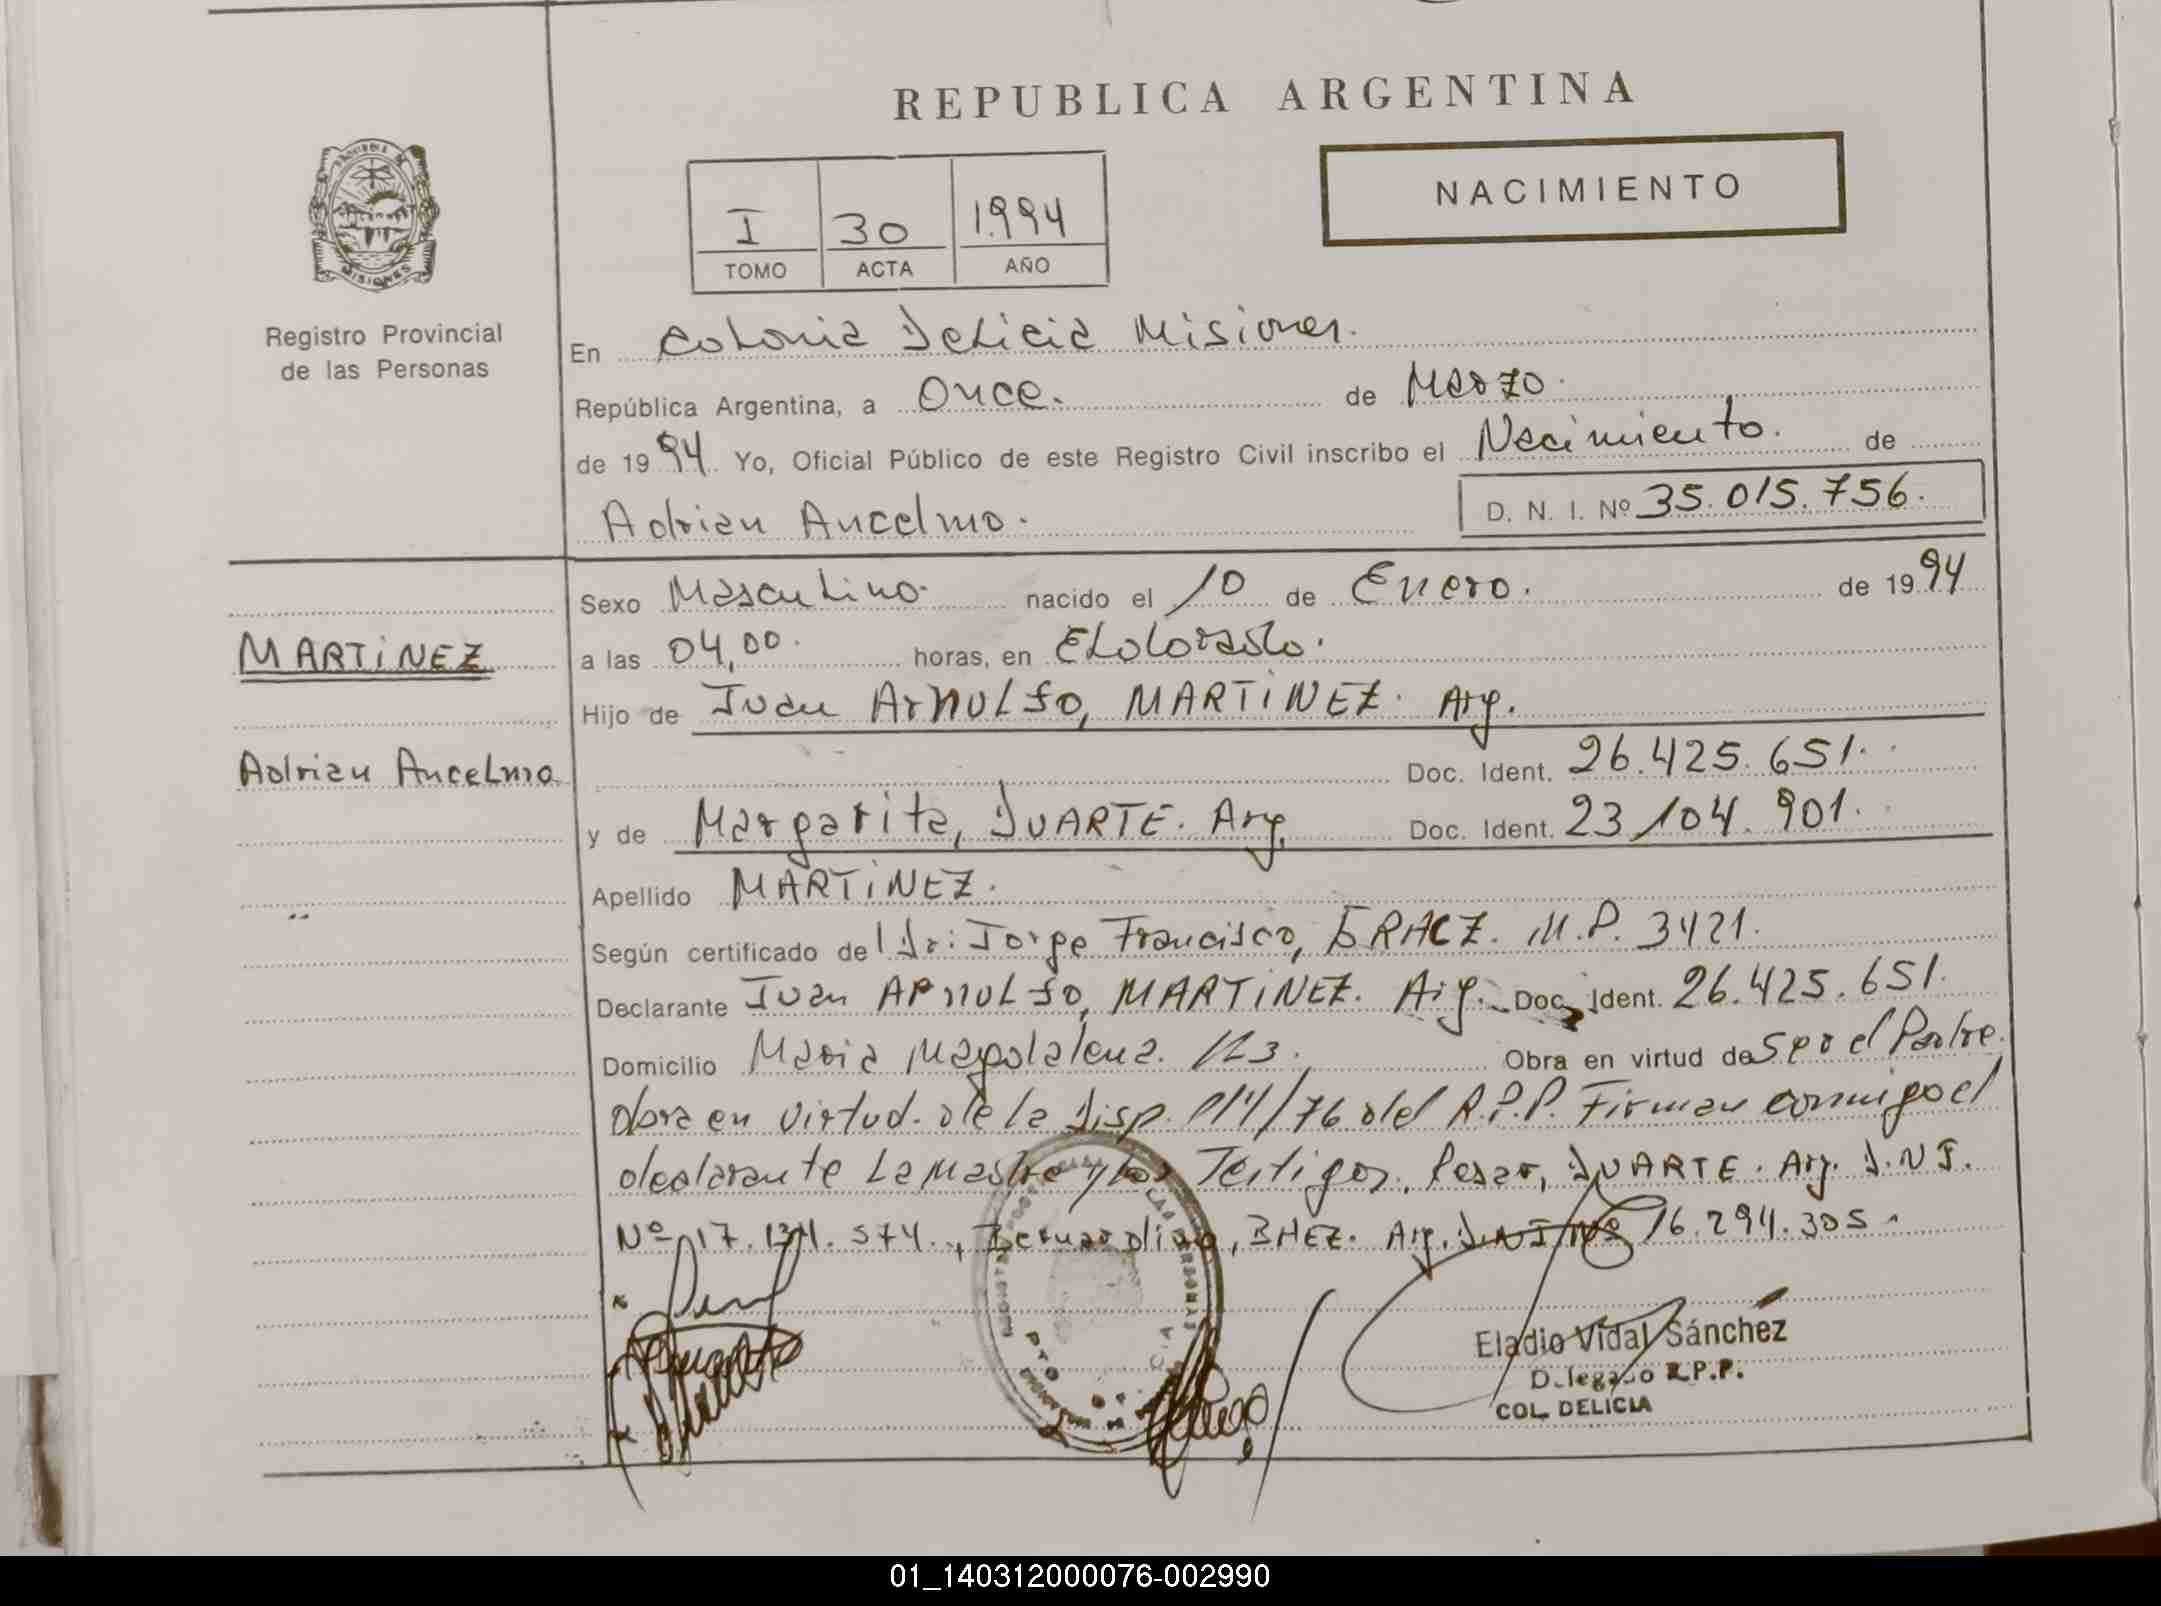 REPUBLICA ARGENTINA
NACIMIENTO
I 30 1994
TOMO ACTA AÑO
PROVINCIA DE MISIONES
Registro Provincial
de las Personas
En Colonia Delicia Misiones.
República Argentina, a Once. de Marzo.
de 1994. Yo, Oficial Público de este Registro Civil inscribo el Nacimiento. de
Adrian Ancelmo. D. N. I. Nº 35.015.756.
MARTiNEZ
Adrian Ancelmo
Sexo Masculino. nacido el 10 de Enero. de 1994
a las 04,00. horas, en Eldorado.
Hijo de Juan Arnulfo, MARTiNEZ. Arg.
Doc. Ident. 26.425.651.
y de Margarita, DUARTE. Arg. Doc. Ident. 23.104.901.
Apellido MARTiNEZ.
Según certificado del Dr: Jorge Francisco, M.P. 3421.
Declarante Juan Arnulfo, MARTiNEZ. Arg. Doc. Ident. 26.425.651.
Domicilio Maria Magdalena. Obra en virtud de Ser el Padre.
obra en virtud. de la Disp. /76 del R.P.P. Firman conmigo el
declarante La Madre y los Testigos, DUARTE. Arg. D.N.I.
Nº 17. , Bernardino, BAEZ. Arg. D.N.I Nº 16.294.305.
Eladio Vidal Sánchez
Delegado R.P.P.
COL. DELICIA
01_140312000076-002990